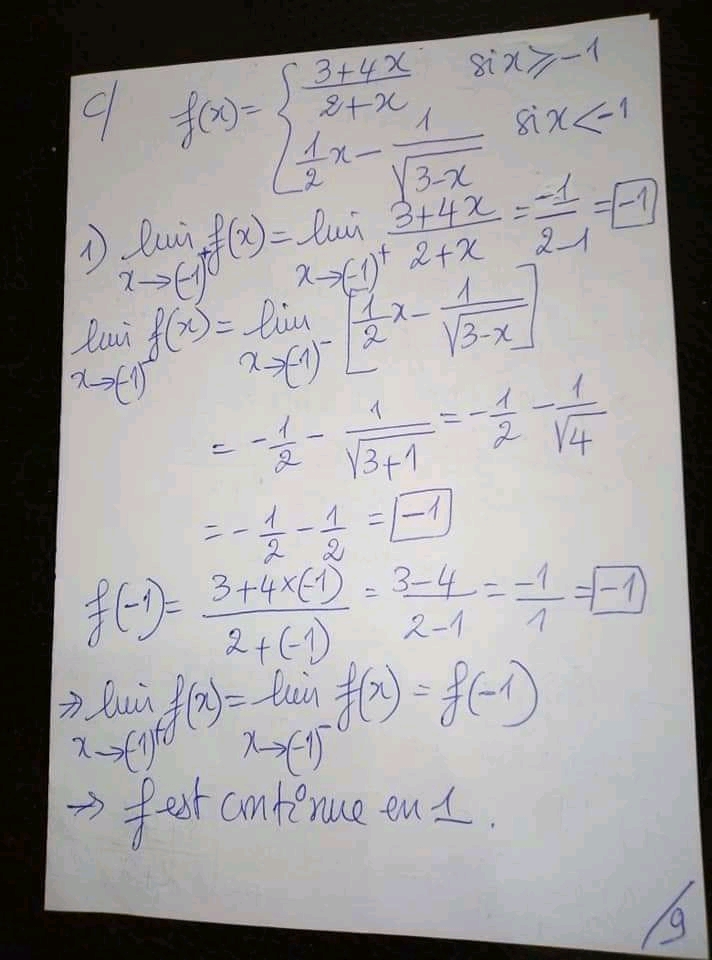 C/ f(x) = { (3+4x)/(2+x) si x ≥ -1
1/2 x - 1/√(3-x) si x < -1
1) lim x→(-1)⁺ f(x) = lim x→(-1)⁺ (3+4x)/(2+x) = -1/(2-1) = -1
lim x→(-1)⁻ f(x) = lim x→(-1)⁻ [1/2 x - 1/√(3-x)]
= -1/2 - 1/√(3+1) = -1/2 - 1/√4
= -1/2 - 1/2 = -1
f(-1) = (3+4×(-1))/(2+(-1)) = (3-4)/(2-1) = -1/1 = -1
⇒ lim x→(-1)⁺ f(x) = lim x→(-1)⁻ f(x) = f(-1)
→ f est continue en 1.
/9